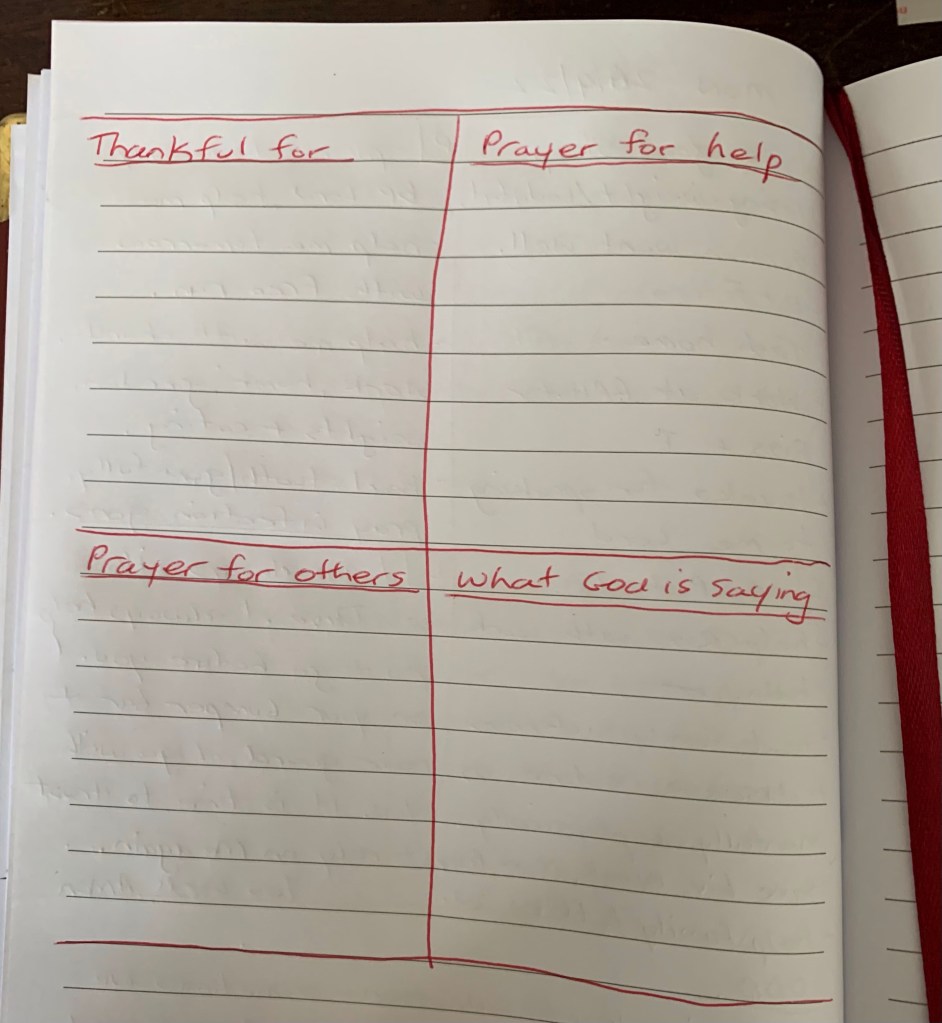 Thankful for
Prayer for help
Prayer for others
What God is saying